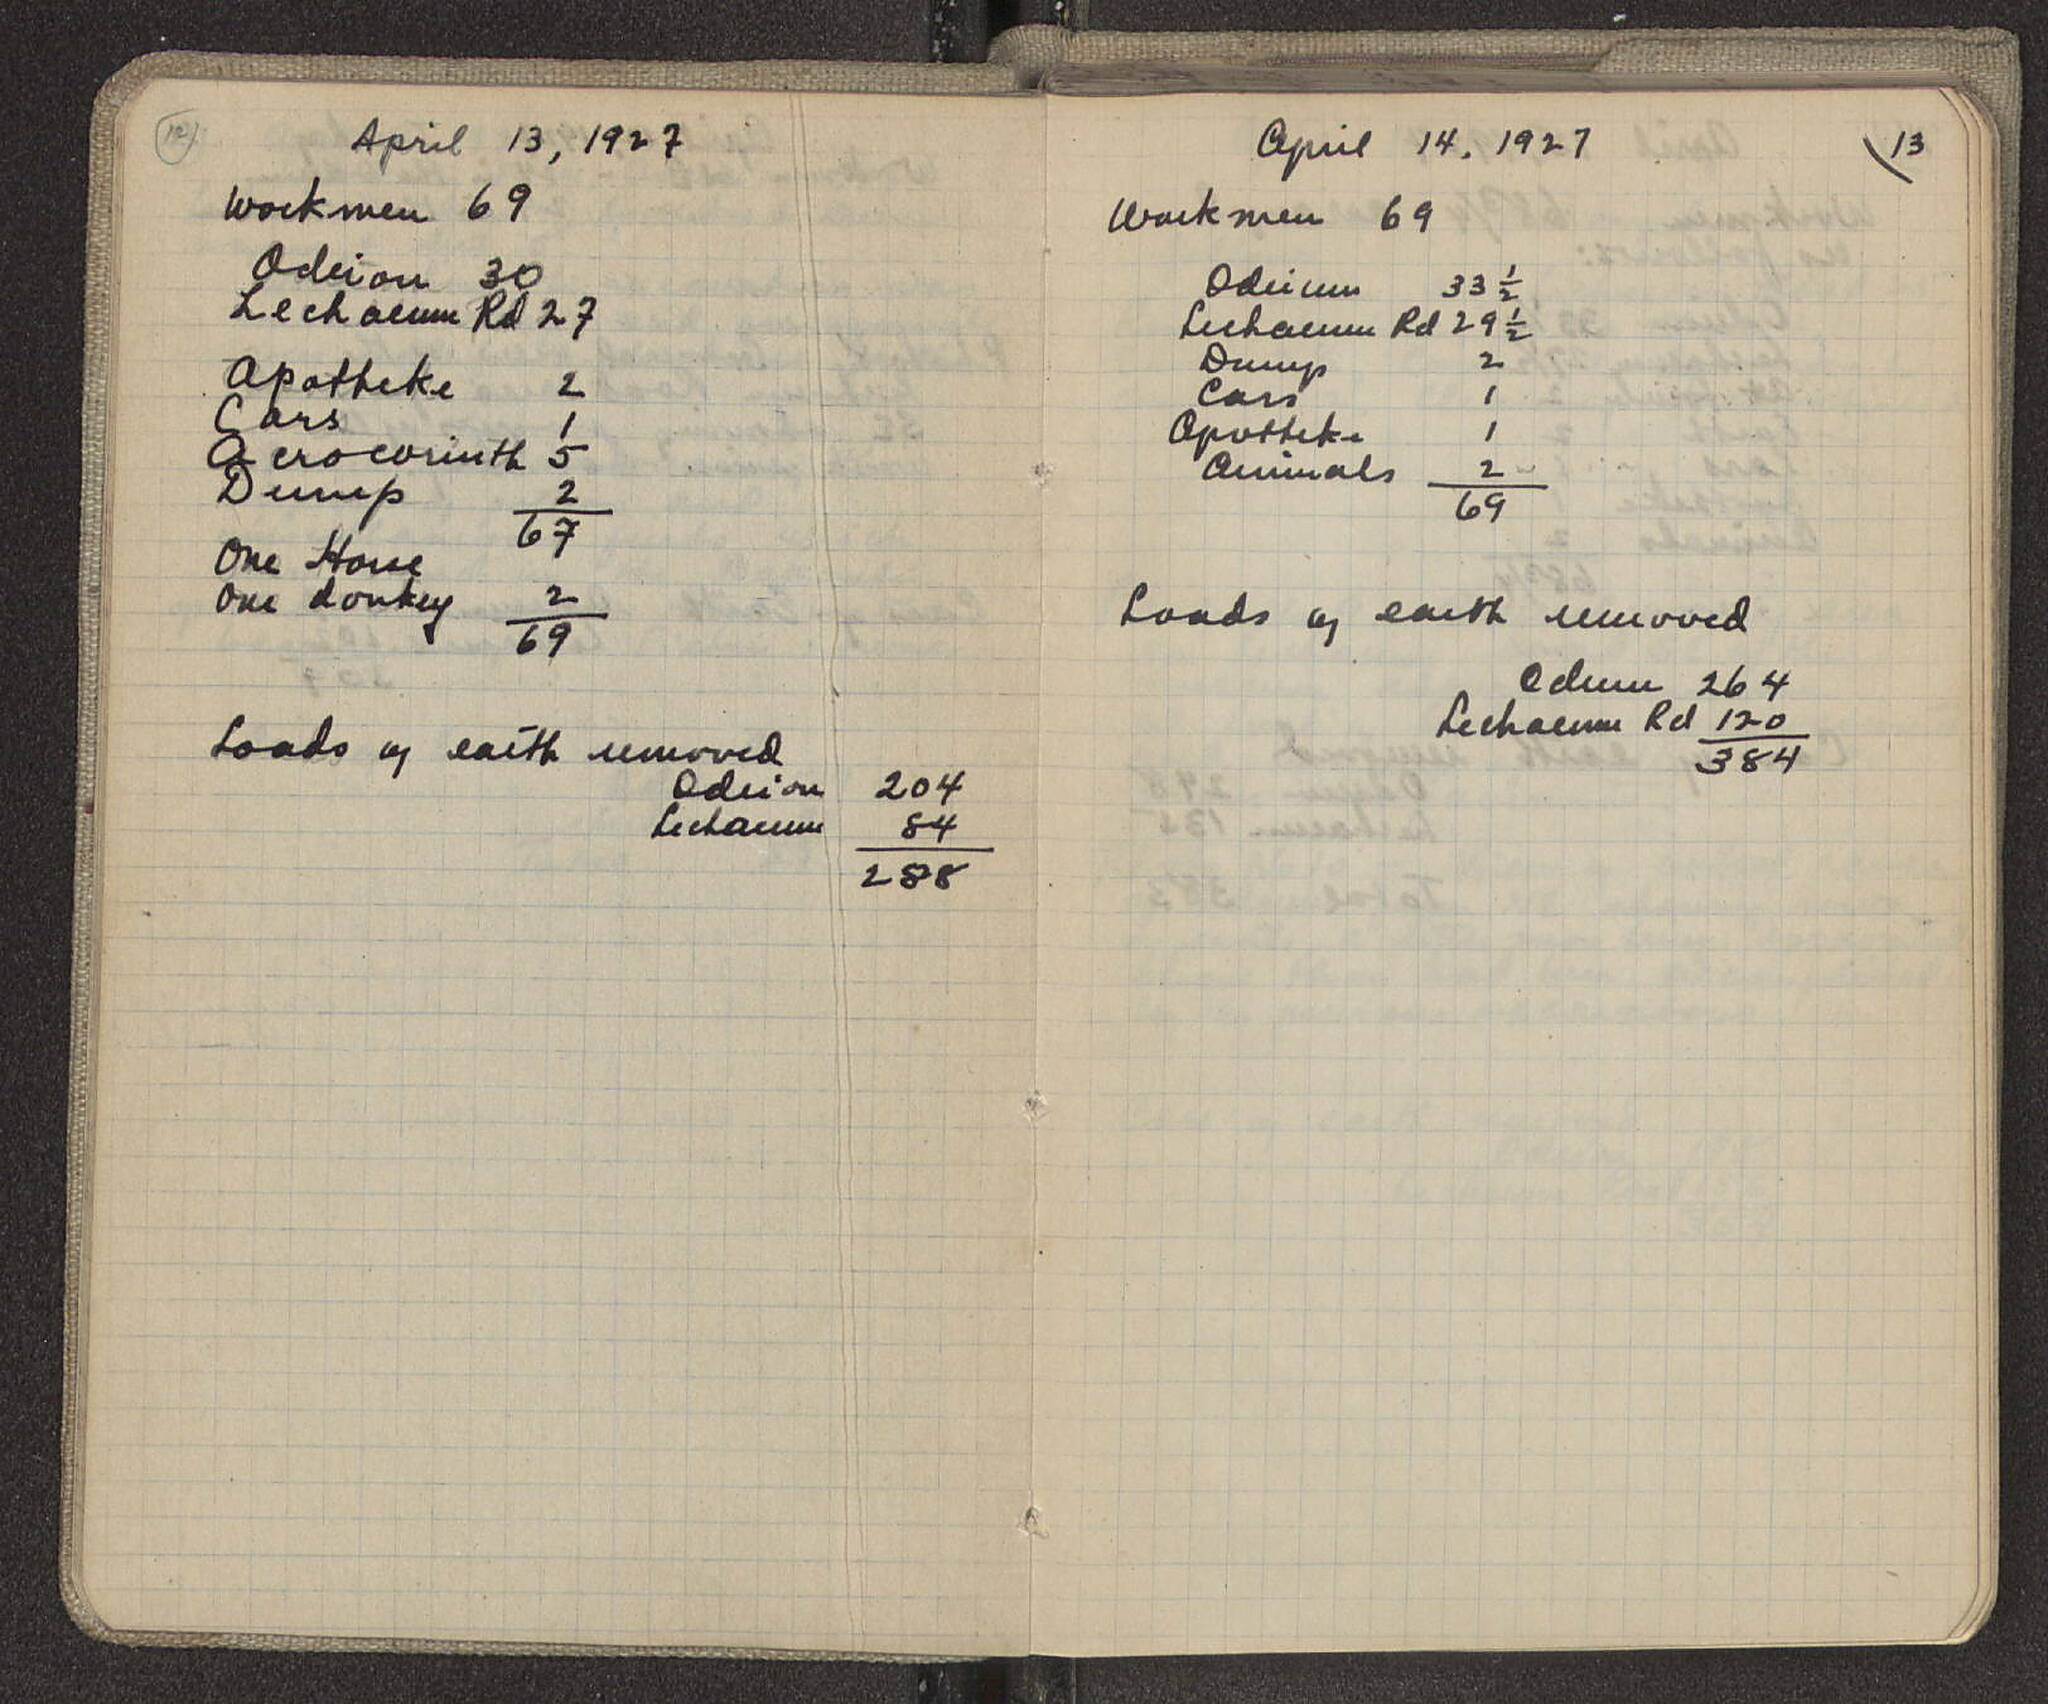 12
April 13, 1927
Workmen 69
Odeion 30
Lechaeum Rd 27
Apotheke 2
Cars 1
Acrocorinth 5
Dump 2
67
One Horse
One donkey 2
69
Loads of earth removed
Odeion 204
Lechaeum 84
288
13
April 14, 1927
Workmen 69
Odeium 33 1/2
Lechaeum Rd 29 1/2
Dump 2
Cars 1
Apotheke 1
Animals 2
69
Loads of earth removed
Odeum 264
Lechaeum Rd 120
384